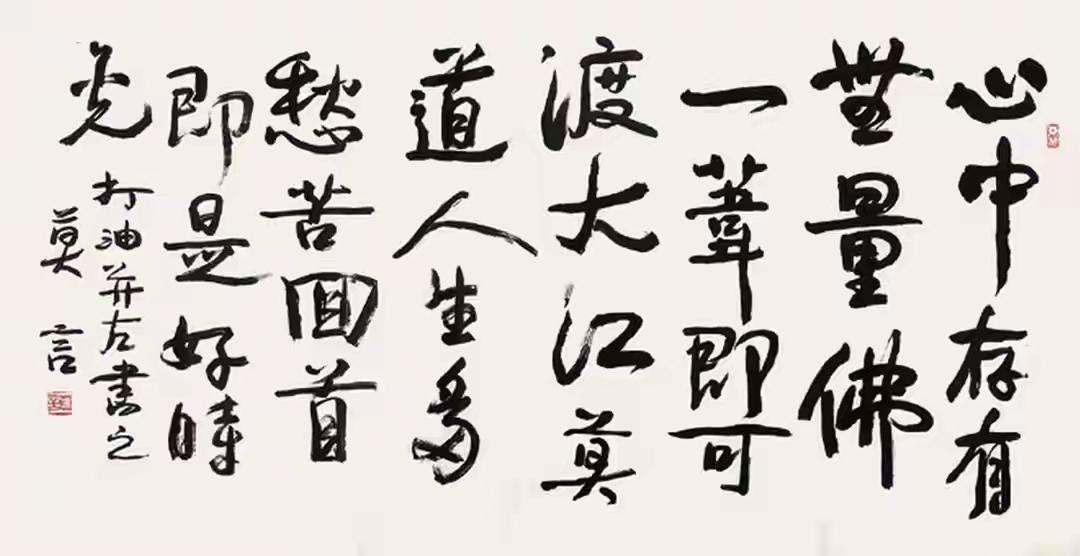 心中存有
無量佛
一葦即可
渡大江莫
道人生多
愁苦回首
即是好時
光
打油并左書之
莫言